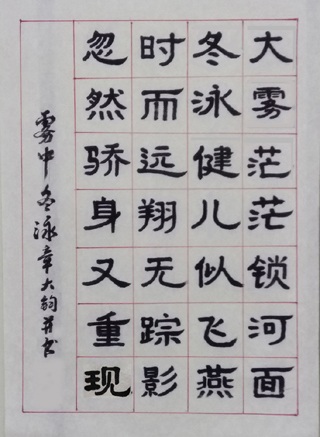 大雾茫茫锁河面
冬泳健儿似飞燕
时而远翔无踪影
忽然骄身又重现
雾中冬泳章大钧并书